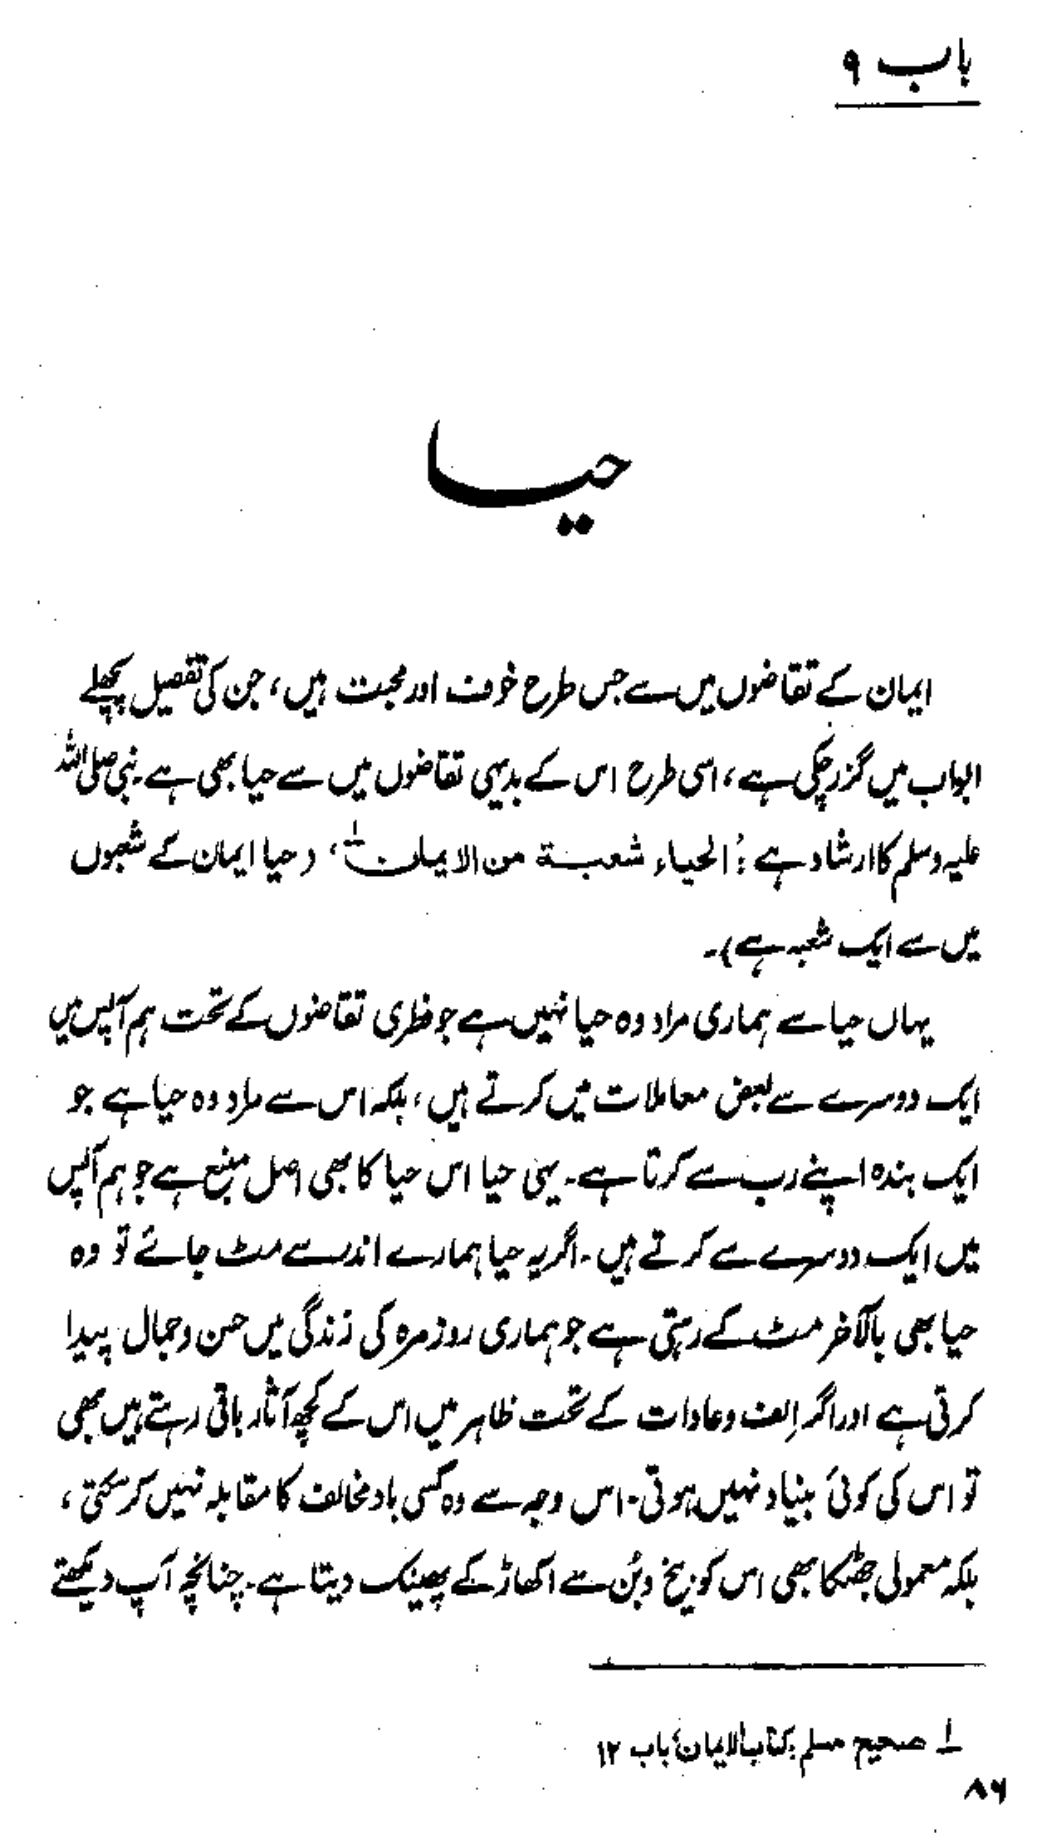 باب ۹
حیا
ایمان کے تقاضوں میں سے جس طرح خوف اور محبت ہیں، جن کی تفصیل پچھلے
ابواب میں گزر چکی ہے، اسی طرح اس کے بدیہی تقاضوں میں سے حیا بھی ہے۔ نبی صلی اللہ
علیہ وسلم کا ارشاد ہے: ’الحیاء شعبۃ من الایمان۱‘، (حیا ایمان کے شعبوں
میں سے ایک شعبہ ہے)۔
یہاں حیا سے ہماری مراد وہ حیا نہیں ہے جو فطری تقاضوں کے تحت ہم آپس میں
ایک دوسرے سے بعض معاملات میں کرتے ہیں، بلکہ اس سے مراد وہ حیا ہے جو
ایک بندہ اپنے رب سے کرتا ہے۔ یہی حیا اس حیا کا بھی اصل منبع ہے جو ہم آپس
میں ایک دوسرے سے کرتے ہیں۔ اگر یہ حیا ہمارے اندر سے مٹ جائے تو وہ
حیا بھی بالآخر مٹ کے رہتی ہے جو ہماری روزمرہ کی زندگی میں حسن و جمال پیدا
کرتی ہے اور اگر اِلف و عادات کے تحت ظاہر میں اس کے کچھ آثار باقی رہتے ہیں بھی
تو اس کی کوئی بنیاد نہیں ہوتی۔ اس وجہ سے وہ کسی باد مخالف کا مقابلہ نہیں کر سکتی،
بلکہ معمولی جھٹکا بھی اس کو بیخ و بُن سے اکھاڑ کے پھینک دیتا ہے۔ چنانچہ آپ دیکھتے
۱ صحیح مسلم: کتاب الایمان، باب ۱۲
۸۶